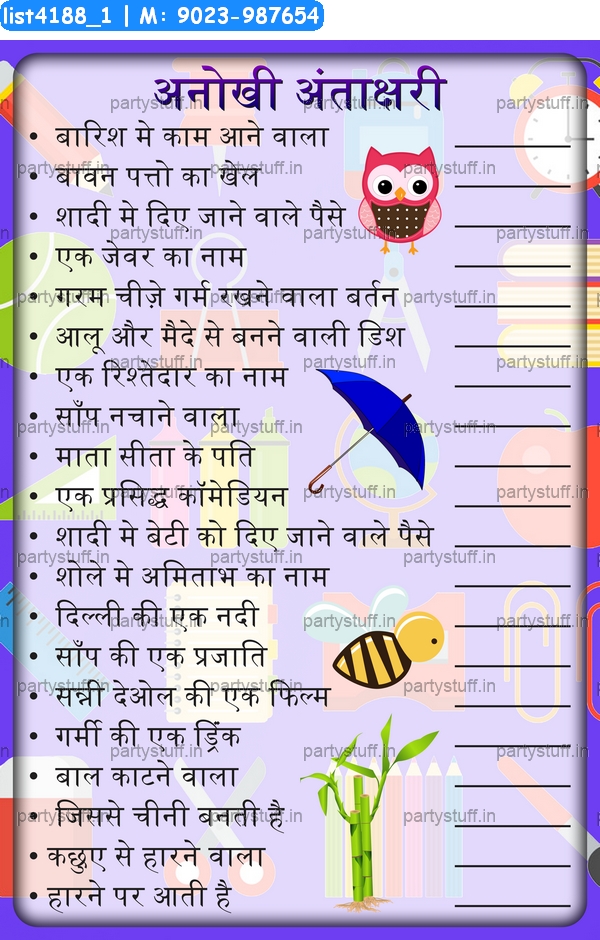 list4188_1 | M: 9023-987654
अनोखी अंताक्षरी
• बारिश मे काम आने वाला
• बावन पत्तो का खेल
• शादी मे दिए जाने वाले पैसे
• एक जेवर का नाम
• गरम चीज़े गर्म रखने वाला बर्तन
• आलू और मैदे से बनने वाली डिश
• एक रिश्तेदार का नाम
• साँप नचाने वाला
• माता सीता के पति
• एक प्रसिद्ध कॉमेडियन
• शादी मे बेटी को दिए जाने वाले पैसे
• शोले मे अमिताभ का नाम
• दिल्ली की एक नदी
• साँप की एक प्रजाति
• सन्नी देओल की एक फिल्म
• गर्मी की एक ड्रिंक
• बाल काटने वाला
• जिससे चीनी बनती है
• कछुए से हारने वाला
• हारने पर आती है
partystuff.in